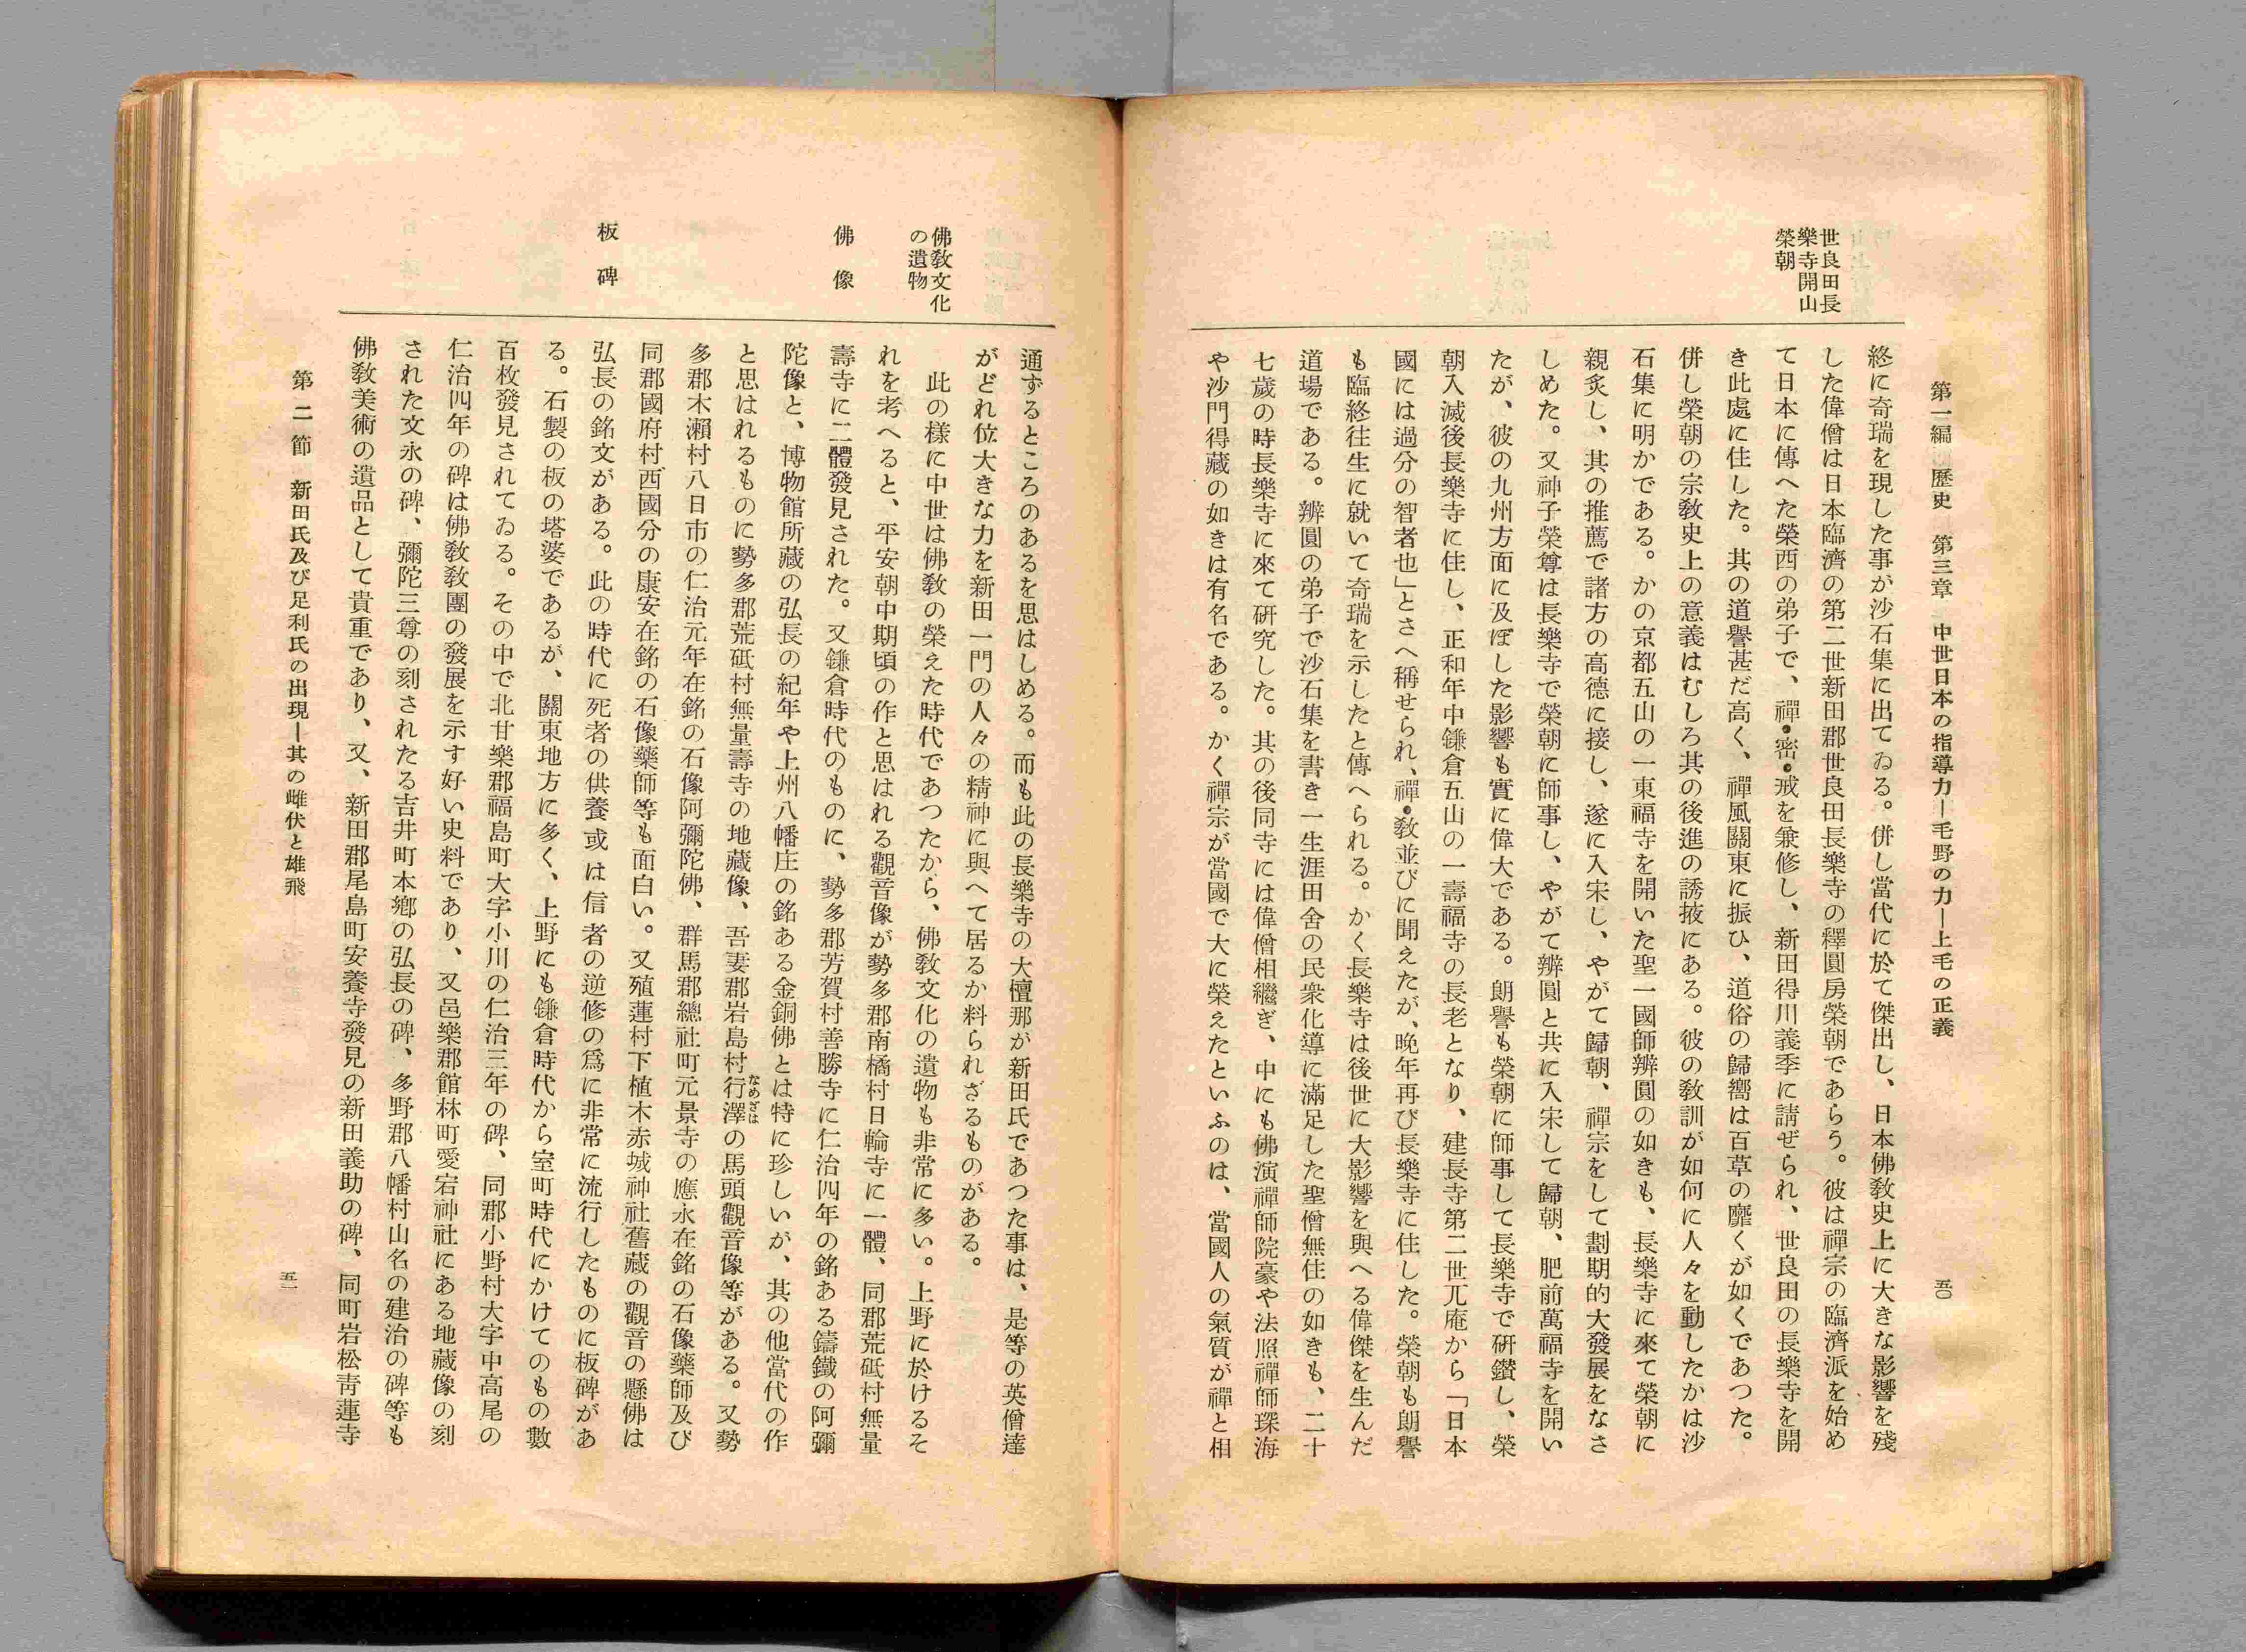 第一編 歷史 第三章 中世日本の指導力―毛野の力―上毛の正義
五〇
世良田長
樂寺開山
榮朝
終に奇瑞を現した事が沙石集に出てゐる。併し當代に於て傑出し、日本佛教史上に大きな影響を殘
した偉僧は日本臨濟の第二世新田郡世良田長樂寺の釋圓房榮朝であらう。彼は禪宗の臨濟派を始め
て日本に傳へた榮西の弟子で、禪・密・戒を兼修し、新田得川義季に請ぜられ、世良田の長樂寺を開
き此處に住した。其の道譽甚だ高く、禪風關東に振ひ、道俗の歸嚮は百草の靡くが如くであつた。
併し榮朝の宗教史上の意義はむしろ其の後進の誘掖にある。彼の教訓が如何に人々を動したかは沙
石集に明かである。かの京都五山の一東福寺を開いた聖一國師辨圓の如きも、長樂寺に來て榮朝に
親炙し、其の推薦で諸方の高德に接し、遂に入宋し、やがて歸朝、禪宗をして劃期的大發展をなさ
しめた。又神子榮尊は長樂寺で榮朝に師事し、やがて辨圓と共に入宋して歸朝、肥前萬福寺を開い
たが、彼の九州方面に及ぼした影響も實に偉大である。朗譽も榮朝に師事して長樂寺で研鑽し、榮
朝入滅後長樂寺に住し、正和年中鎌倉五山の一壽福寺の長老となり、建長寺第二世兀庵から「日本
國には過分の智者也」とさへ稱せられ、禪・教並びに聞えたが、晩年再び長樂寺に住した。榮朝も朗譽
も臨終往生に就いて奇瑞を示したと傳へられる。かく長樂寺は後世に大影響を與へる偉傑を生んだ
道場である。辨圓の弟子で沙石集を書き一生涯田舍の民衆化導に滿足した聖僧無住の如きも、二十
七歲の時長樂寺に來て研究した。其の後同寺には偉僧相繼ぎ、中にも佛演禪師院豪や法照禪師琛海
や沙門得藏の如きは有名である。かく禪宗が當國で大に榮えたといふのは、當國人の氣質が禪と相
佛教文化
の遺物
佛像
板碑
通ずるところのあるを思はしめる。而も此の長樂寺の大檀那が新田氏であつた事は、是等の英僧達
がどれ位大きな力を新田一門の人々の精神に與へて居るか料られざるものがある。
此の樣に中世は佛教の榮えた時代であつたから、佛教文化の遺物も非常に多い。上野に於けるそ
れを考へると、平安朝中期頃の作と思はれる觀音像が勢多郡南橘村日輪寺に一體、同郡荒砥村無量
壽寺に二體發見された。又鎌倉時代のものに、勢多郡芳賀村善勝寺に仁治四年の銘ある鑄鐵の阿彌
陀像と、博物館所藏の弘長の紀年や上州八幡庄の銘ある金銅佛とは特に珍しいが、其の他當代の作
と思はれるものに勢多郡荒砥村無量壽寺の地藏像、吾妻郡岩島村行澤なめざはの馬頭觀音像等がある。又勢
多郡木瀨村八日市の仁治元年在銘の石像阿彌陀佛、群馬郡總社町元景寺の應永在銘の石像藥師及び
同郡國府村西國分の康安在銘の石像藥師等も面白い。又殖蓮村下植木赤城神社舊藏の觀音の懸佛は
弘長の銘文がある。此の時代に死者の供養或は信者の逆修の爲に非常に流行したものに板碑があ
る。石製の板の塔婆であるが、關東地方に多く、上野にも鎌倉時代から室町時代にかけてのもの數
百枚發見されてゐる。その中で北甘樂郡福島町大字小川の仁治三年の碑、同郡小野村大字中高尾の
仁治四年の碑は佛教教團の發展を示す好い史料であり、又邑樂郡館林町愛宕神社にある地藏像の刻
された文永の碑、彌陀三尊の刻されたる吉井町本鄕の弘長の碑、多野郡八幡村山名の建治の碑等も
佛教美術の遺品として貴重であり、又、新田郡尾島町安養寺發見の新田義助の碑、同町岩松靑蓮寺
第二節 新田氏及び足利氏の出現―其の雌伏と雄飛
五一